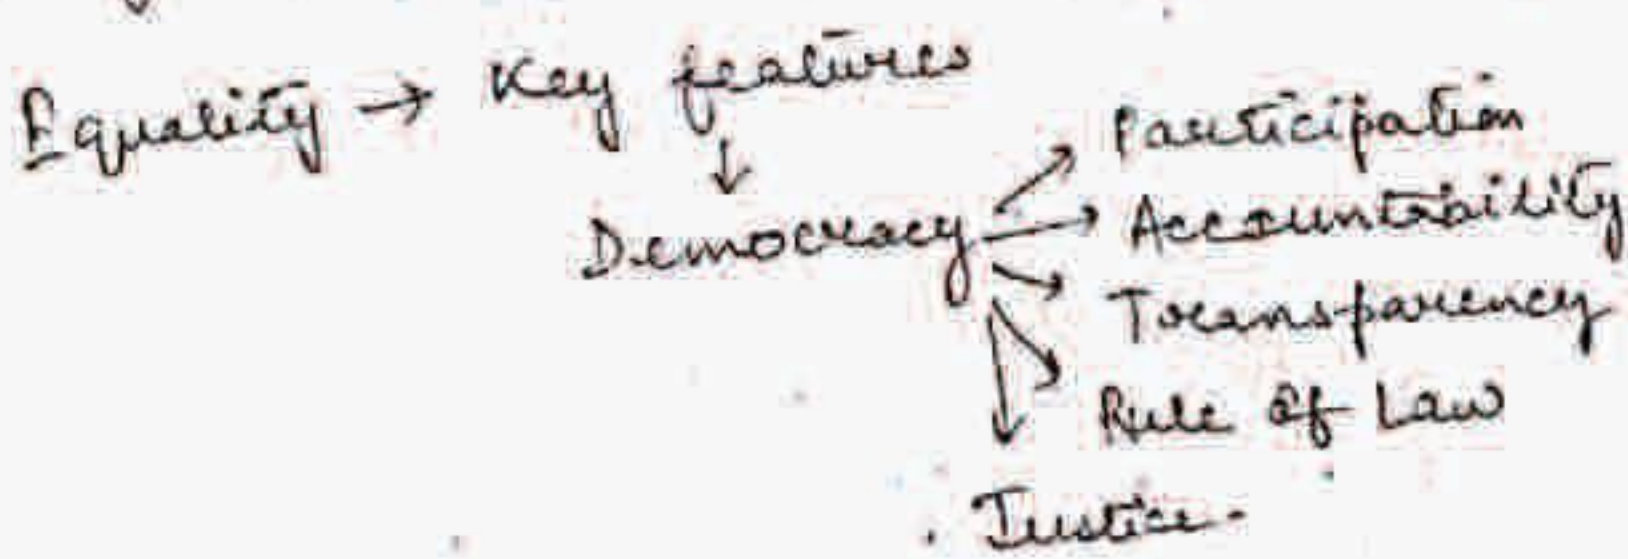 Equality → Key features
↓
Democracy
Participation
Accountability
Transparency
Rule of Law
Justice.